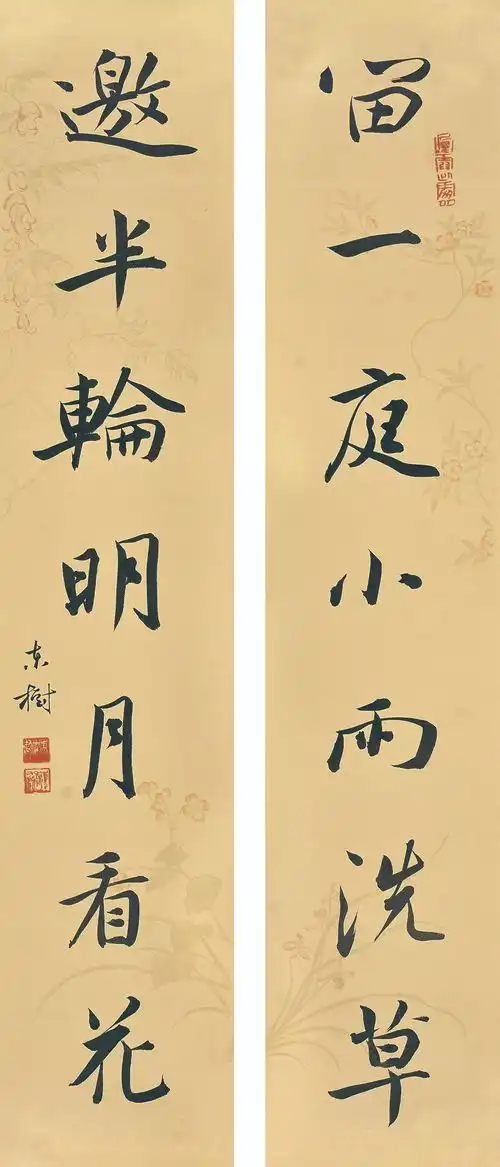 留一庭小雨洗草
邀半輪明月看花
东樹